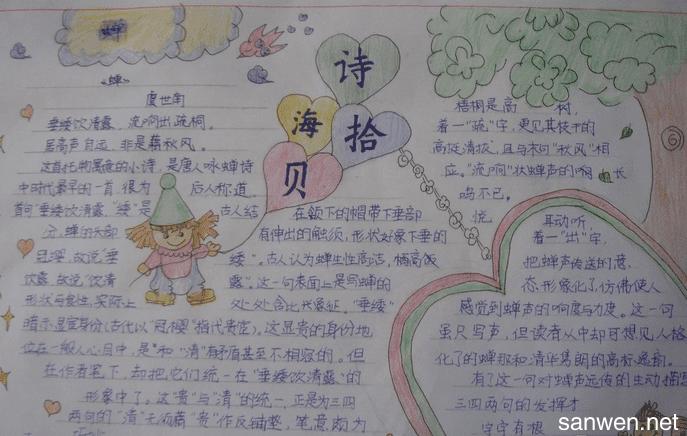 诗
海
拾
贝
《蝉》
虞世南
垂緌饮清露，流响出疏桐。
居高声自远，非是藉秋风。
这首托物寓意的小诗，是唐人咏蝉诗
中时代最早的一首，很为 后人称道
首句"垂緌饮清露，"緌"是 古人结
在颔下的帽带下垂部
分，蝉的头部 有伸出的触须，形状好象下垂的
冠缨，故说"垂 緌"。古人认为蝉生性高洁，栖高饮
饮露，故说"饮清 露"。这一句表面上是写蝉的
形状与食性，实际上 处处含比兴象征。"垂緌"
暗示显宦身份(古代以"冠缨"指代贵宦)。这显贵的身份地
位在一般人心目中，是"和"清"有矛盾甚至不相容的。但
在作者笔下，却把它们统一在"垂緌饮清露"的
形象中了。这"贵"与"清"的统一，正是为三四
两句的"清"无须藉"贵"作反铺垫，笔意颇为
梧桐是高 树，
着一"疏"字，更见其枝干的
高挺清拔，且与末句"秋风"相
应。"流响"状蝉声的 长
鸣不已。
悦 耳动听，
着一"出"字，
把蝉声传送的意
态形象化了，仿佛使人
感觉到蝉声的响度与力度。这一句
虽只写声，但读者从中却可想见人格
化了的蝉那和清华隽朗的高标逸韵。
有了这一句对蝉声远传的生动描
三四两句的发挥才
字字有根
sanwen.net